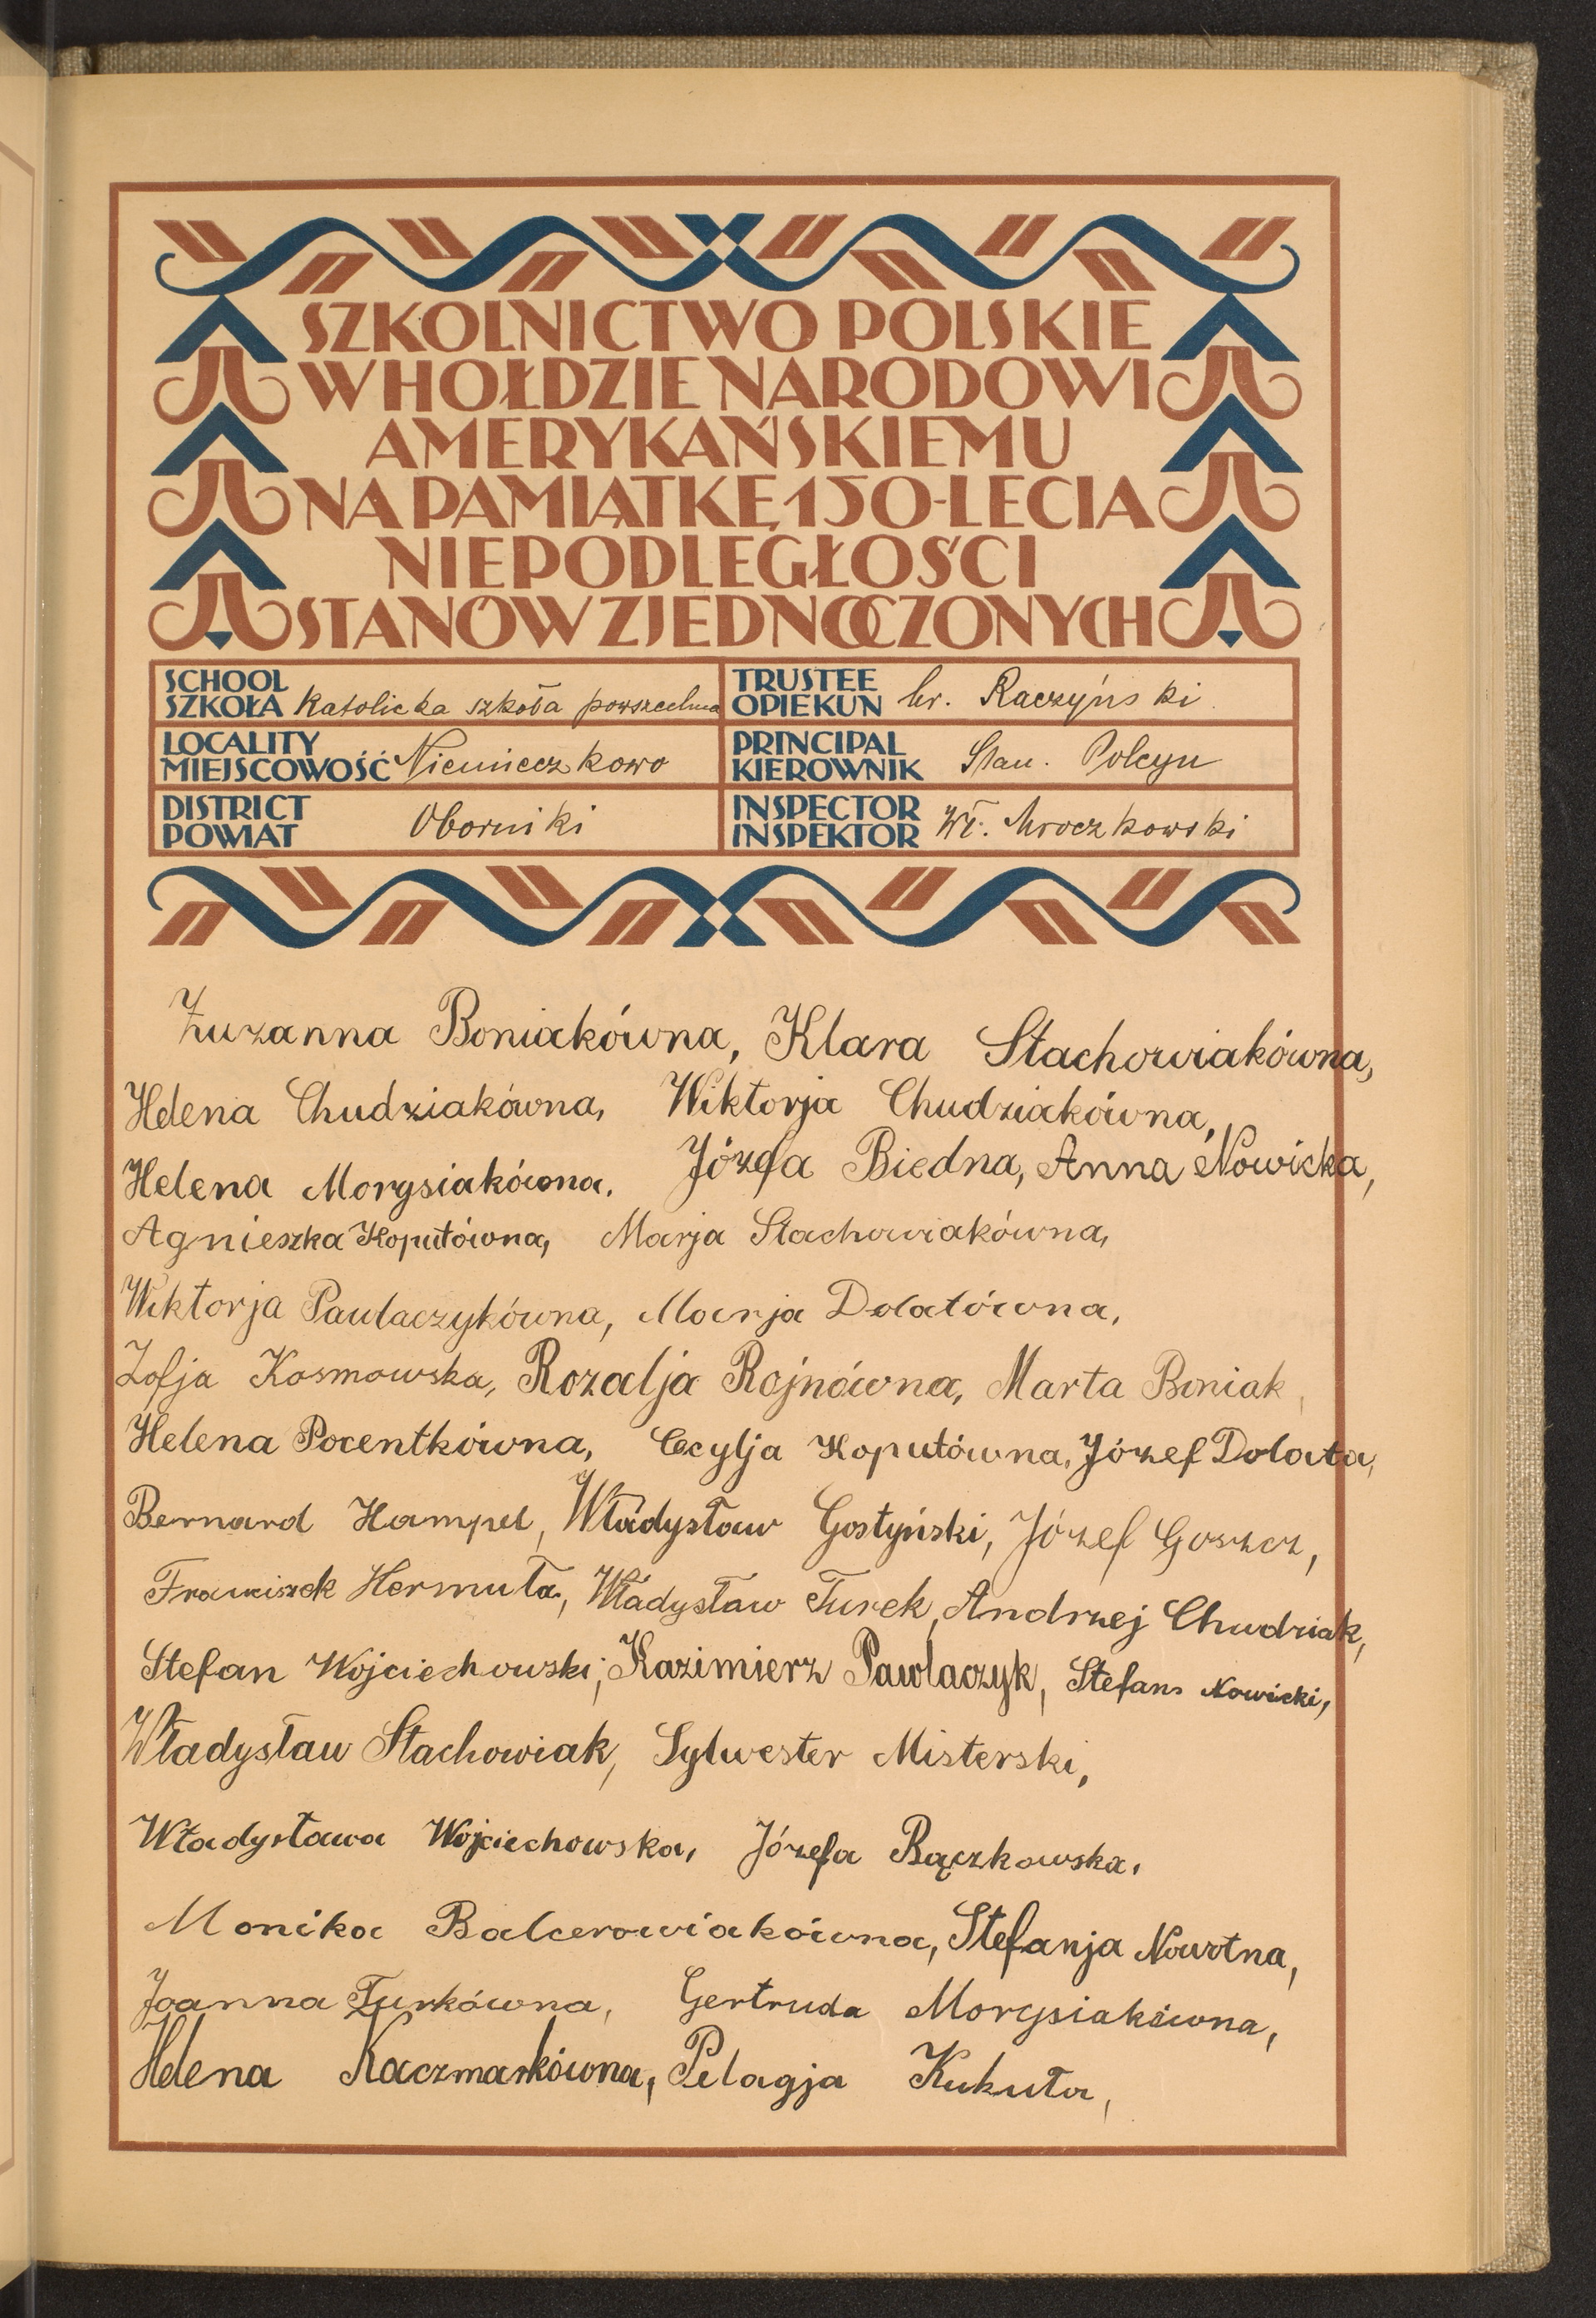 SZKOLNICTWO POLSKIE
W HOŁDZIE NARODOWI
AMERYKAŃSKIEMU
NA PAMIĄTKĘ 150-LECIA
NIEPODLEGŁOŚCI
STANÓW ZJEDNOCZONYCH
SCHOOL
SZKOŁA Katolicka szkoła powszechna
TRUSTEE
OPIEKUN hr. Raczyński
LOCALITY
MIEJSCOWOŚĆ Niemieczkowo
PRINCIPAL
KIEROWNIK Stan. Polcyn
DISTRICT
POWIAT Oborniki
INSPECTOR
INSPEKTOR Wł. Mroczkowski
Zuzanna Boniakówna, Klara Stachowiakówna,
Helena Chudziakówna, Wiktorja Chudziakówna,
Helena Morysiakówna, Józefa Biedna, Anna Nowicka,
Agnieszka Koputówna, Marja Stachowiakówna,
Wiktorja Pawlaczykówna, Marja Dolatówna,
Zofja Kosmowska, Rozalja Rojnówna, Marta Boniak,
Helena Pocentkówna, Cecylja Koputówna, Józef Dolata,
Bernard Hampel, Władysław Gostyński, Józef Goszcz,
Franciszek Hermuła, Władysław Turek, Andrzej Chudziak,
Stefan Wojciechowski, Kazimierz Pawlaczyk, Stefan Nowicki,
Władysław Stachowiak, Sylwester Misterski,
Władysława Wojciechowska, Józefa Bączkowska,
Monika Balcerowiakówna, Stefanja Nowotna,
Joanna Turkówna, Gertruda Morysiakówna,
Helena Kaczmarkówna, Pelagja Kukuła,